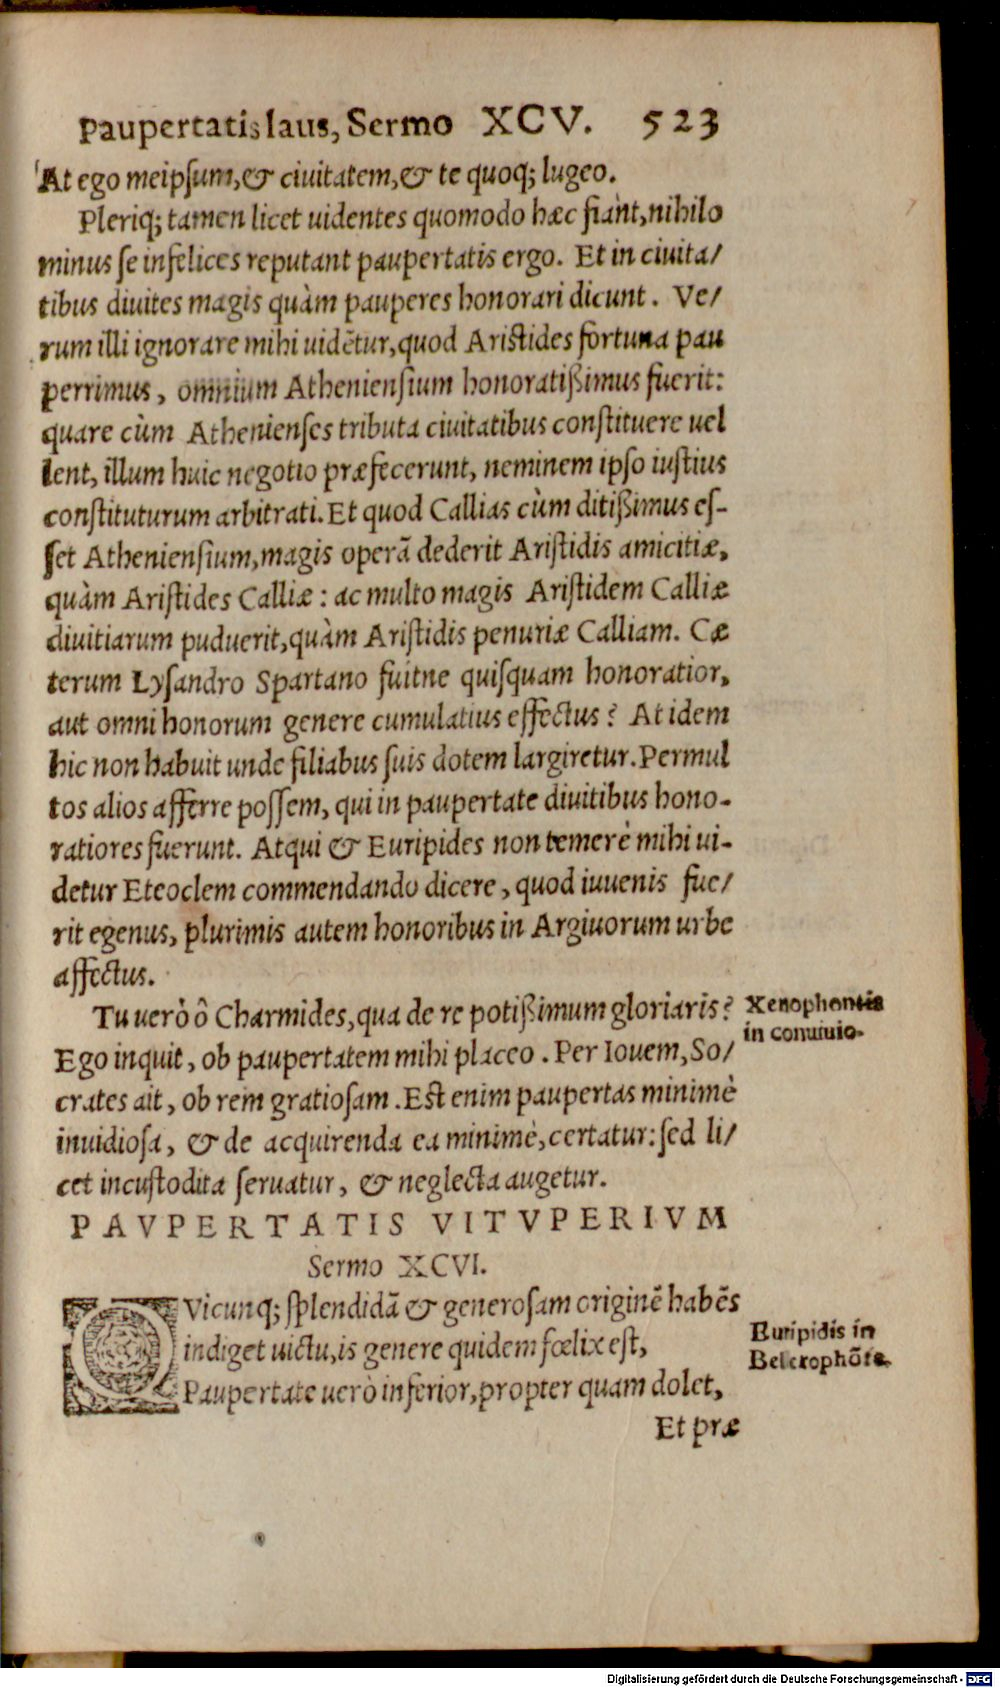 Paupertatis laus, Sermo XCV. 523
At ego meipsum, & ciuitatem, & te quoq; lugeo.
Pleriq; tamen licet uidentes quomodo hæc fiant, nihilo
minus se infelices reputant paupertatis ergo. Et in ciuita/
tibus diuites magis quàm pauperes honorari dicunt. Ve/
rum illi ignorare mihi uidẽtur, quod Aristides fortuna pau
perrimus, omnium Atheniensium honoratißimus fuerit:
quare cùm Athenienses tributa ciuitatibus constituere uel
lent, illum huic negotio præfecerunt, neminem ipso iustius
constituturum arbitrati. Et quod Callias cùm ditißimus es-
set Atheniensium, magis operã dederit Aristidis amicitiæ,
quàm Aristides Calliæ: ac multo magis Aristidem Calliæ
diuitiarum puduerit, quàm Aristidis penuriæ Calliam. Cæ
terum Lysandro Spartano fuitne quisquam honoratior,
aut omni honorum genere cumulatius effectus? At idem
hic non habuit unde filiabus suis dotem largiretur. Permul
tos alios afferre possem, qui in paupertate diuitibus hono-
ratiores fuerunt. Atqui & Euripides non temerè mihi ui-
detur Eteoclem commendando dicere, quod iuuenis fue/
rit egenus, plurimis autem honoribus in Argiuorum urbe
affectus.
Tu uerò ô Charmides, qua de re potißimum gloriaris?
Xenophontis
in conuiuio.
Ego inquit, ob paupertatem mihi placeo. Per Iouem, So/
crates ait, ob rem gratiosam. Est enim paupertas minimè
inuidiosa, & de acquirenda ea minimè, certatur: sed li/
cet incustodita seruatur, & neglecta augetur.
PAVPERTATIS VITVPERIVM
Sermo XCVI.
QVicunq; splendidã & generosam originẽ habẽs
indiget uictu, is genere quidem fœlix est,
Paupertate uerò inferior, propter quam dolet,
Euripidis in
Belerophõte.
Et præ
Digitalisierung gefördert durch die Deutsche Forschungsgemeinschaft - DFG